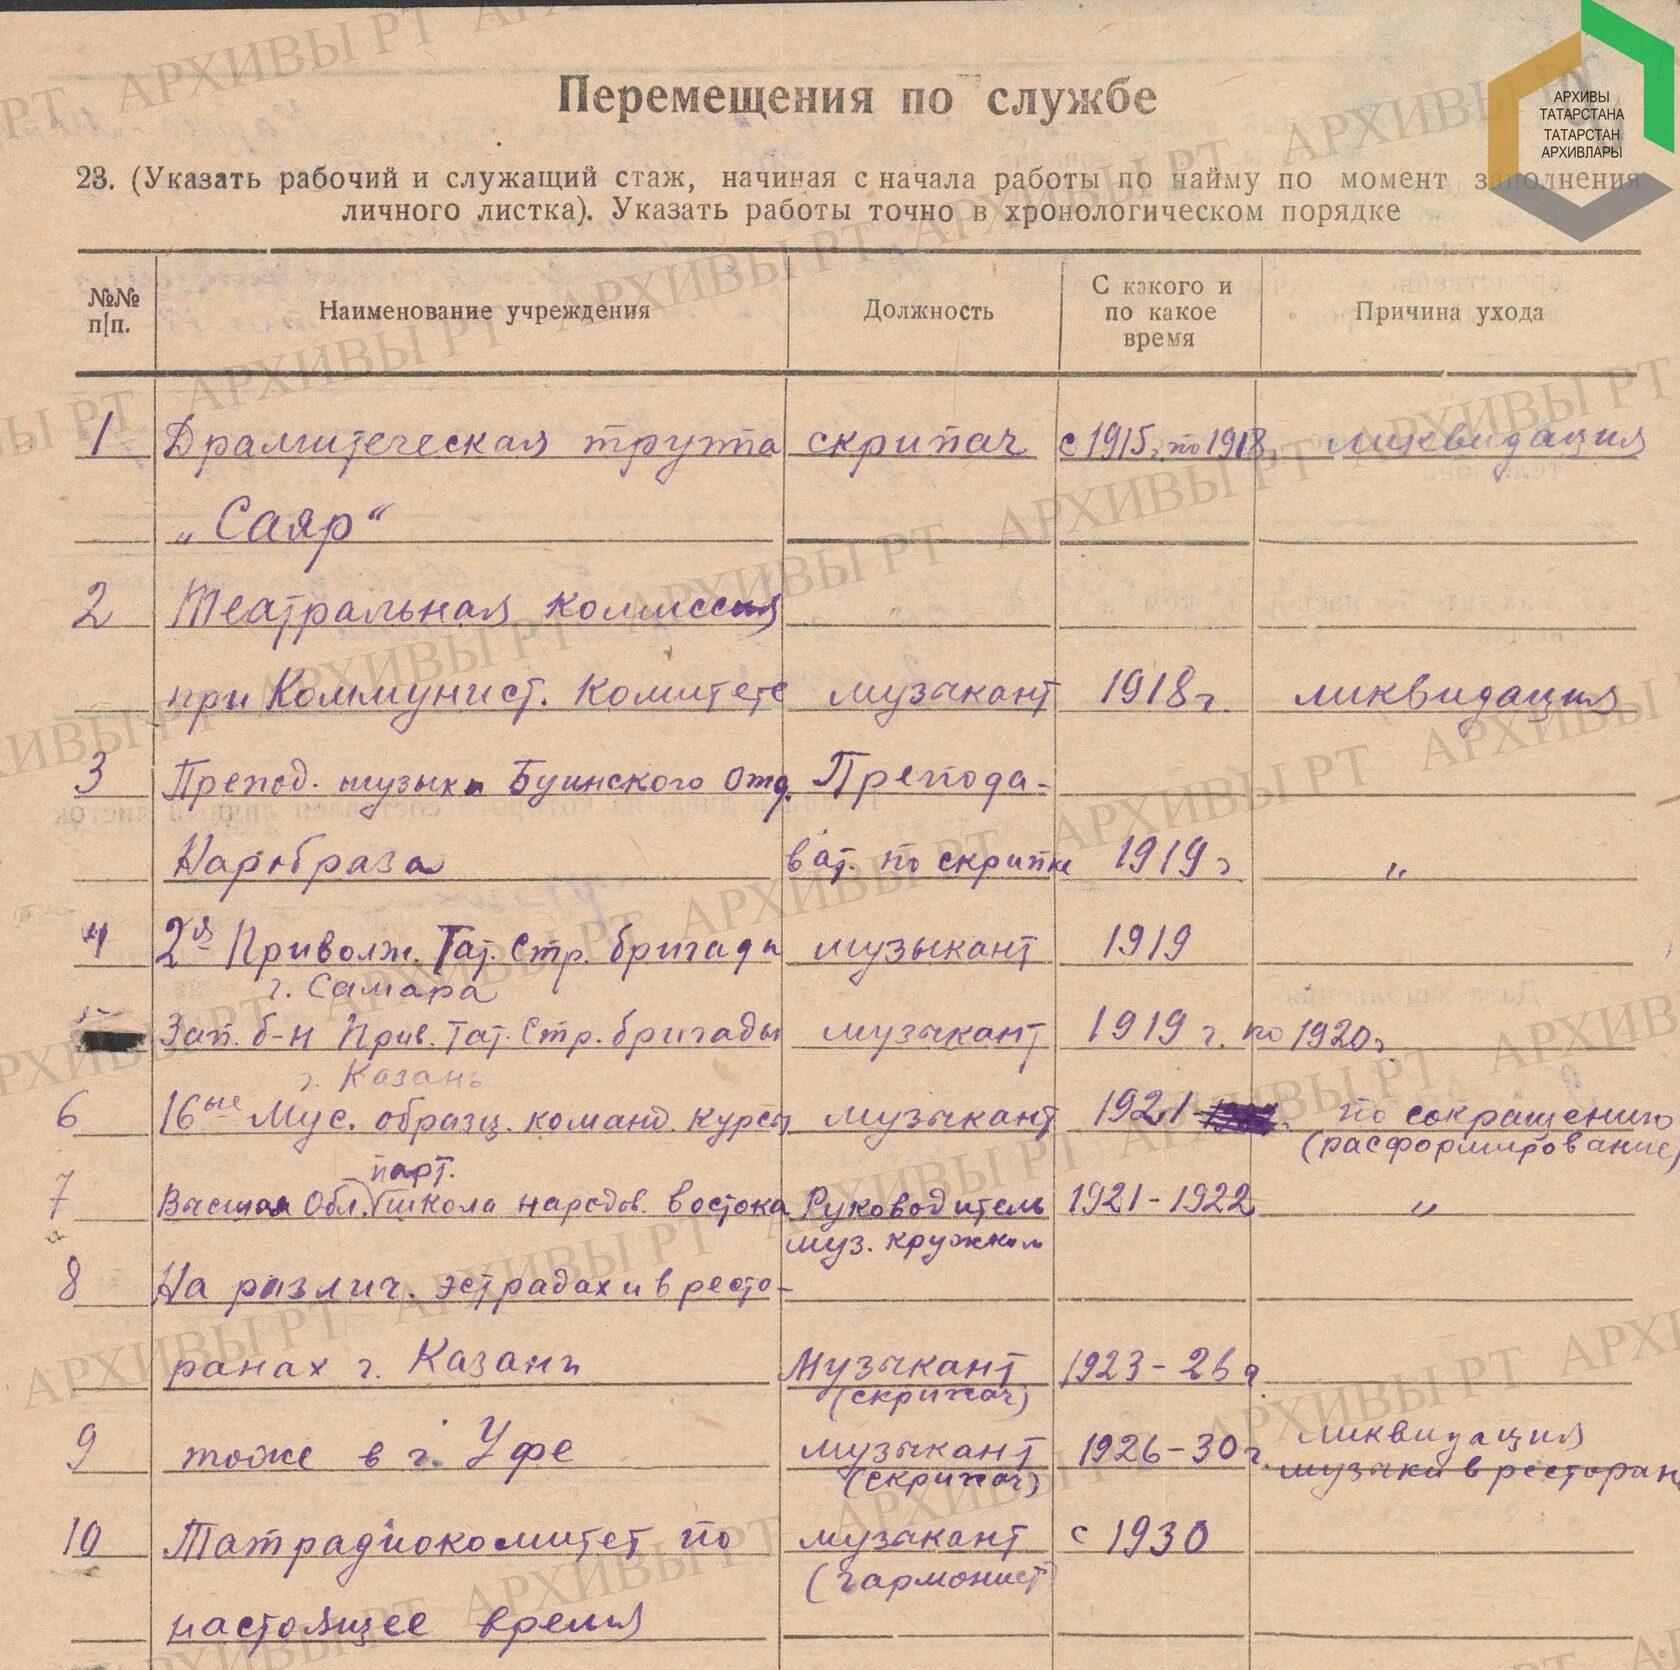 Перемещения по службе
23. (Указать рабочий и служащий стаж, начиная с начала работы по найму по момент заполнения
личного листка). Указать работы точно в хронологическом порядке
АРХИВЫ
ТАТАРСТАНА
ТАТАРСТАН
АРХИВЛАРЫ
№№ п/п. Наименование учреждения Должность С какого и по какое время Причина ухода
1 Драматическая труппа скрипач с 1915 г. по 1918 ликвидация
„Саяр“
2 Театральная комиссия
при Коммунист. Комитете музыкант 1918 г. ликвидация
3 Препод. музыки Буинского Отд. Препода-
Наробраза ват. по скрипке 1919 г "
4 2я Приволж. Тат. Стр. бригады музыкант 1919
г. Самара
5 Зап. б-н Прив. Тат. Стр. бригады музыкант 1919 г. по 1920 г.
г. Казань
6 16ые Мус. образц. команд. курсы музыкант 1921 по сокращению
(расформирование)
парт.
7 Высшая Обл. школа народов. востока Руководитель 1921-1922 "
муз. кружком
8 На различ. эстрадах и в ресто-
ранах г. Казани Музыкант 1923-26 г.
(скрипач)
9 тоже в г. Уфе музыкант 1926-30 г. ликвидация
(скрипач) музыки в ресторан
10 Татрадиокомитет по музыкант с 1930
(гармонист)
настоящее время
АРХИВЫ РТ